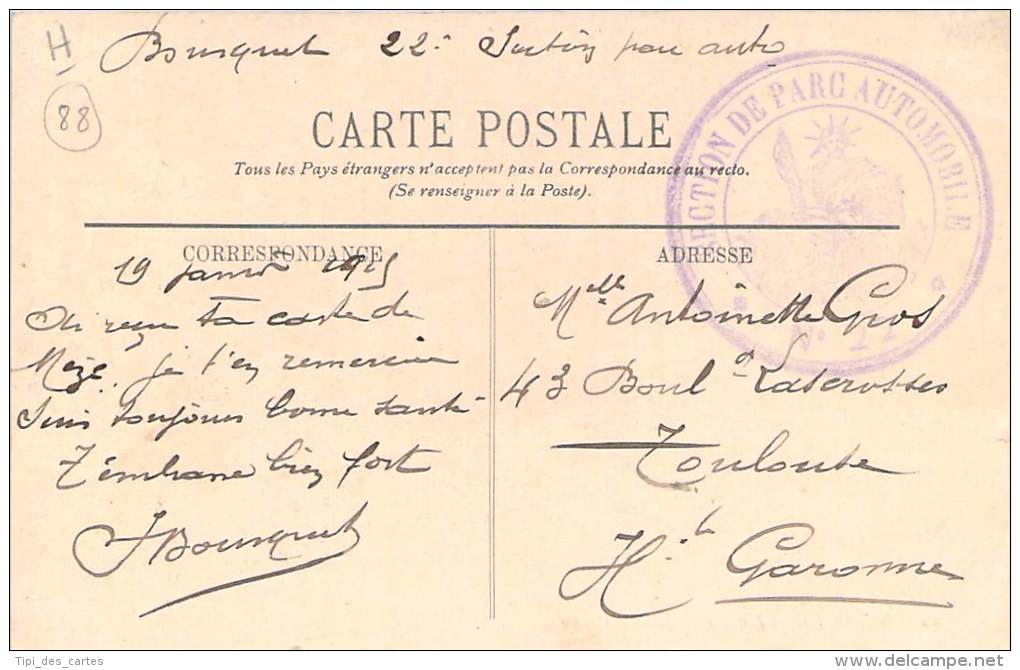 H
88
Bousquet 22e Section parc auto
SECTION DE PARC AUTOMOBILE
No 22
CARTE POSTALE
Tous les Pays étrangers n'acceptent pas la Correspondance au recto.
(Se renseigner à la Poste).
CORRESPONDANCE
19 janvier 1915
Ai reçu ta carte de
Mèze. je t'en remercie
Suis toujours bonne santé
T'embrasse bien fort
J Bousquet
ADRESSE
Melle Antoinette Gros
43 Boul d Lascrosses
Toulouse
Hte Garonne
Tipi_des_cartes
delcampe.net